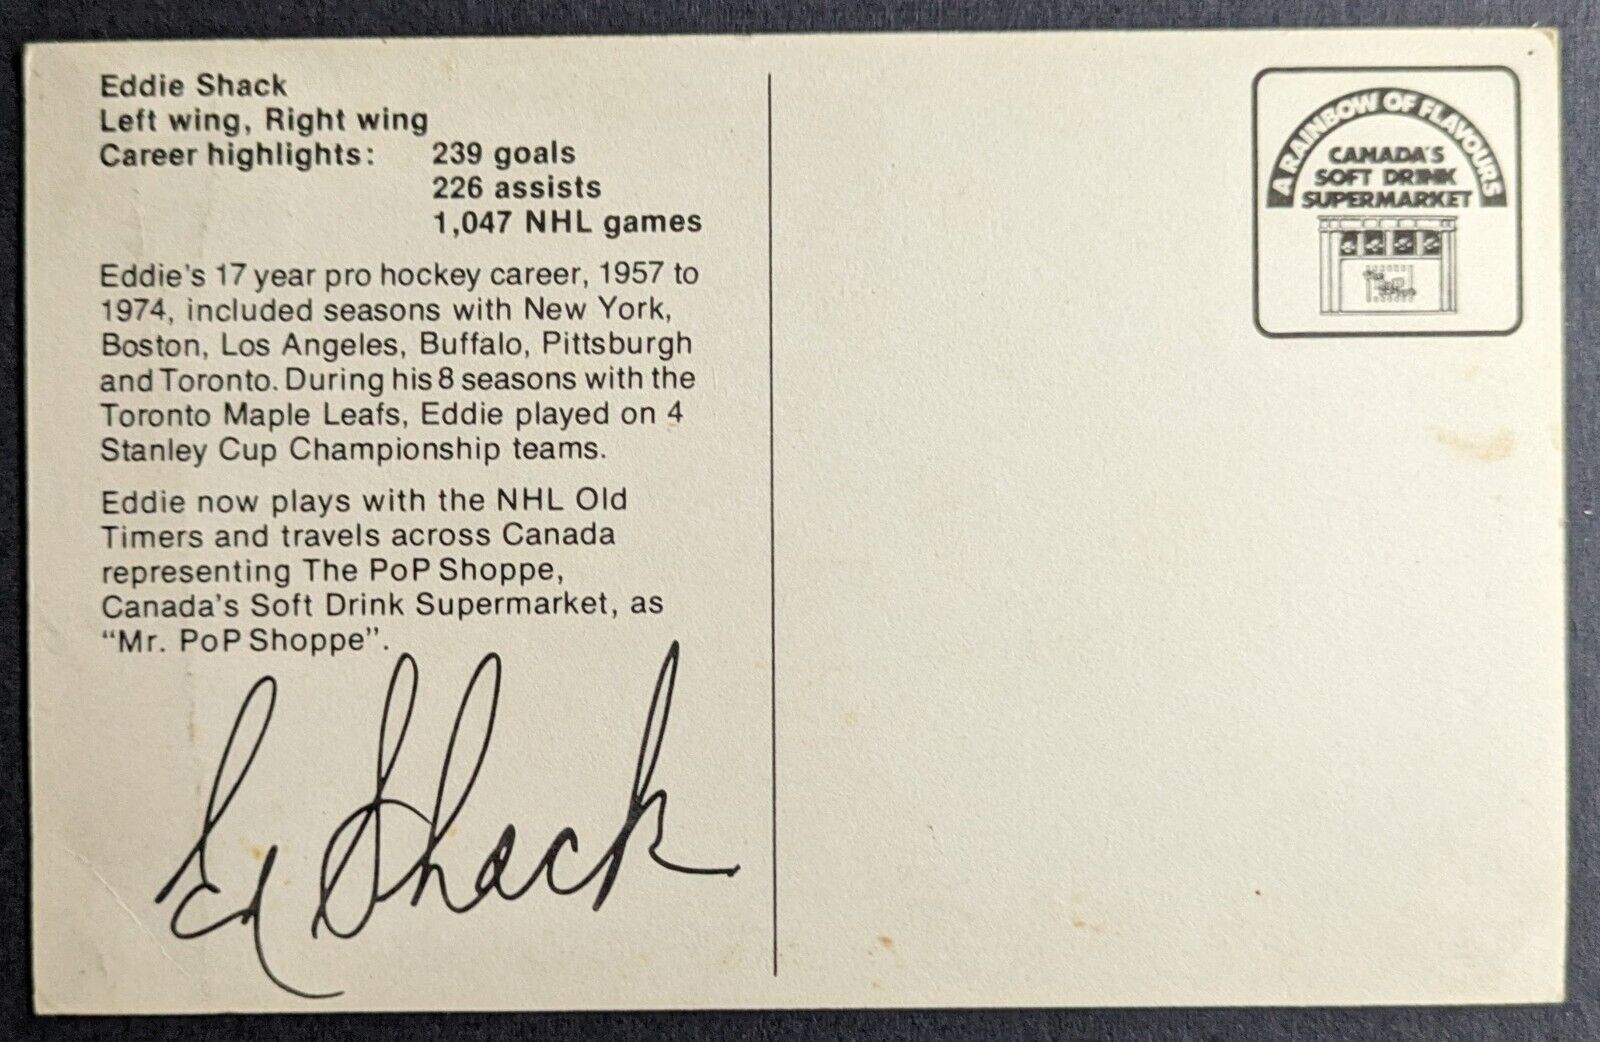 Eddie Shack
Left wing, Right wing
Career highlights: 239 goals
226 assists
1,047 NHL games
Eddie's 17 year pro hockey career, 1957 to
1974, included seasons with New York,
Boston, Los Angeles, Buffalo, Pittsburgh
and Toronto. During his 8 seasons with the
Toronto Maple Leafs, Eddie played on 4
Stanley Cup Championship teams.
Eddie now plays with the NHL Old
Timers and travels across Canada
representing The PoP Shoppe,
Canada's Soft Drink Supermarket, as
“Mr. PoP Shoppe”.
Ed Shack
A RAINBOW OF FLAVOURS
CANADA'S
SOFT DRINK
SUPERMARKET